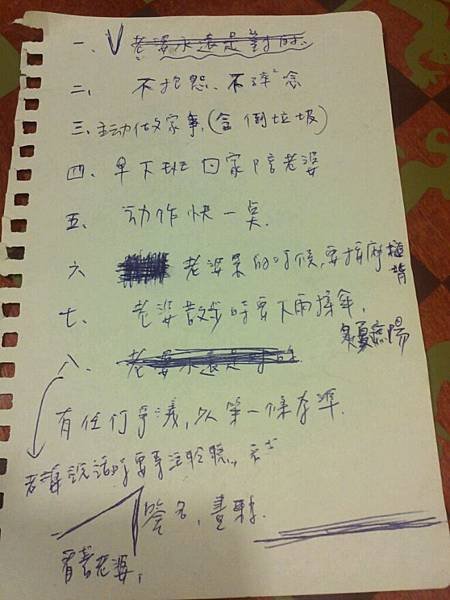 一、老婆永遠是對的.
二、不抱怨、不碎念
三、主动做家事,(含倒垃圾)
四、早下班回家陪老婆
五、动作快一桌.
六 老婆累的时候,要按摩搥背
七、老婆散步时要下雨撐傘,
夏遮陽
八、老婆永遠是对的
有任何爭議,以第一條為準.
老婆說話时要專注聆聽,
簽名,畫押.
看著老婆,